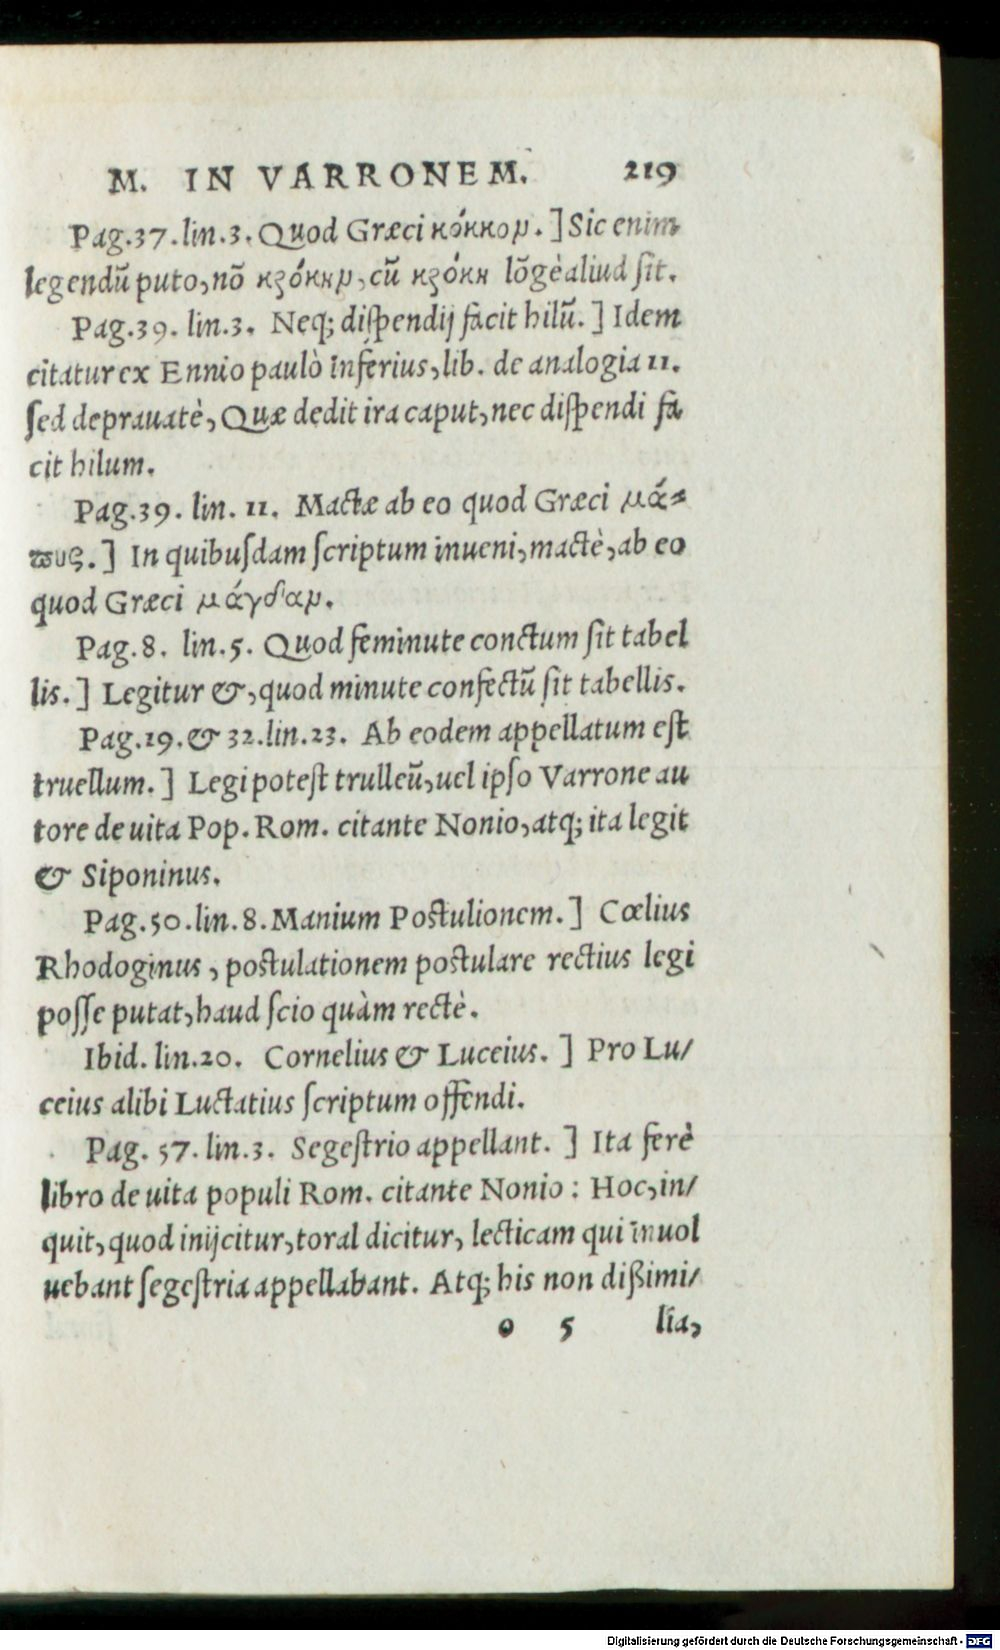 M. IN VARRONEM. 219
Pag.37.lin.3. Quod Græci κόκκομ.] Sic enim
legendũ puto, nõ κρόκημ, cũ κρόκη lõgè aliud ſit.
Pag.39. lin.3. Neq; diſpendij facit hilũ.] Idem
citatur ex Ennio paulò inferius, lib. de analogia 11.
ſed deprauatè, Quæ dedit ira caput, nec diſpendi fa
cit hilum.
Pag.39. lin. 11. Mactæ ab eo quod Græci μά⸗
ϖυς.] In quibuſdam ſcriptum inueni, mactè, ab eo
quod Græci μάγδαμ.
Pag.8. lin.5. Quod feminute conctum ſit tabel
lis.] Legitur &, quod minute confectũ ſit tabellis.
Pag.19.& 32.lin.23. Ab eodem appellatum eſt
truellum.] Legi poteſt trulleũ, uel ipſo Varrone au
tore de uita Pop. Rom. citante Nonio, atq; ita legit
& Siponinus.
Pag.50.lin.8. Manium Poſtulionem.] Cœlius
Rhodoginus, poſtulationem poſtulare rectius legi
poſſe putat, haud ſcio quàm rectè.
Ibid. lin.20. Cornelius & Luceius.] Pro Lu/
ceius alibi Luctatius ſcriptum offendi.
Pag. 57. lin.3. Segeſtrio appellant.] Ita ferè
libro de uita populi Rom. citante Nonio: Hoc, in/
quit, quod inijcitur, toral dicitur, lecticam qui inuol
uebant ſegeſtria appellabant. Atq; his non dißimi/
o 5 lia,
Digitalisierung gefördert durch die Deutsche Forschungsgemeinschaft - DFG